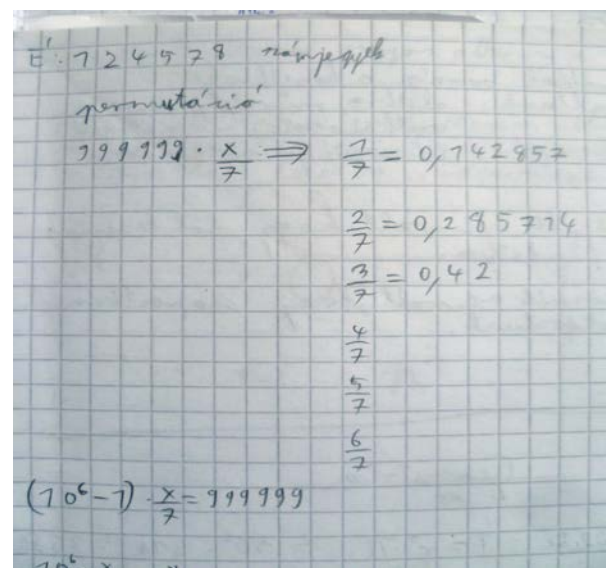 É: 1 2 4 5 7 8 számjegyek
permutáció
999999 · x/7 ⟹ 1/7 = 0,142857
2/7 = 0,285714
3/7 = 0,42
4/7
5/7
6/7
(10⁶-1) · x/7 = 999999